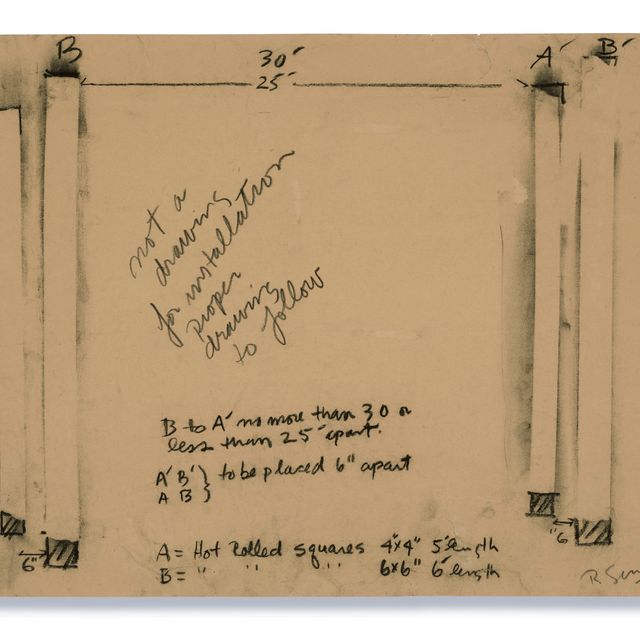 B
30'
A'
B'
25'
not a
drawing
for installation
proper
drawing
to follow
B to A' no more than 30 or
less than 25' apart.
A' B' } to be placed 6" apart
A B }
6"
"6
A = Hot Rolled squares 4"x4" 5' length
B = " " " 6x6" 6' length
R